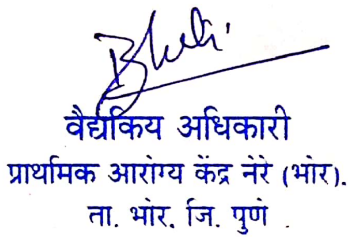 वैद्यकिय अधिकारी
प्राथमिक आरोग्य केंद्र नेरे (भोर).
ता. भोर. जि. पुणे .